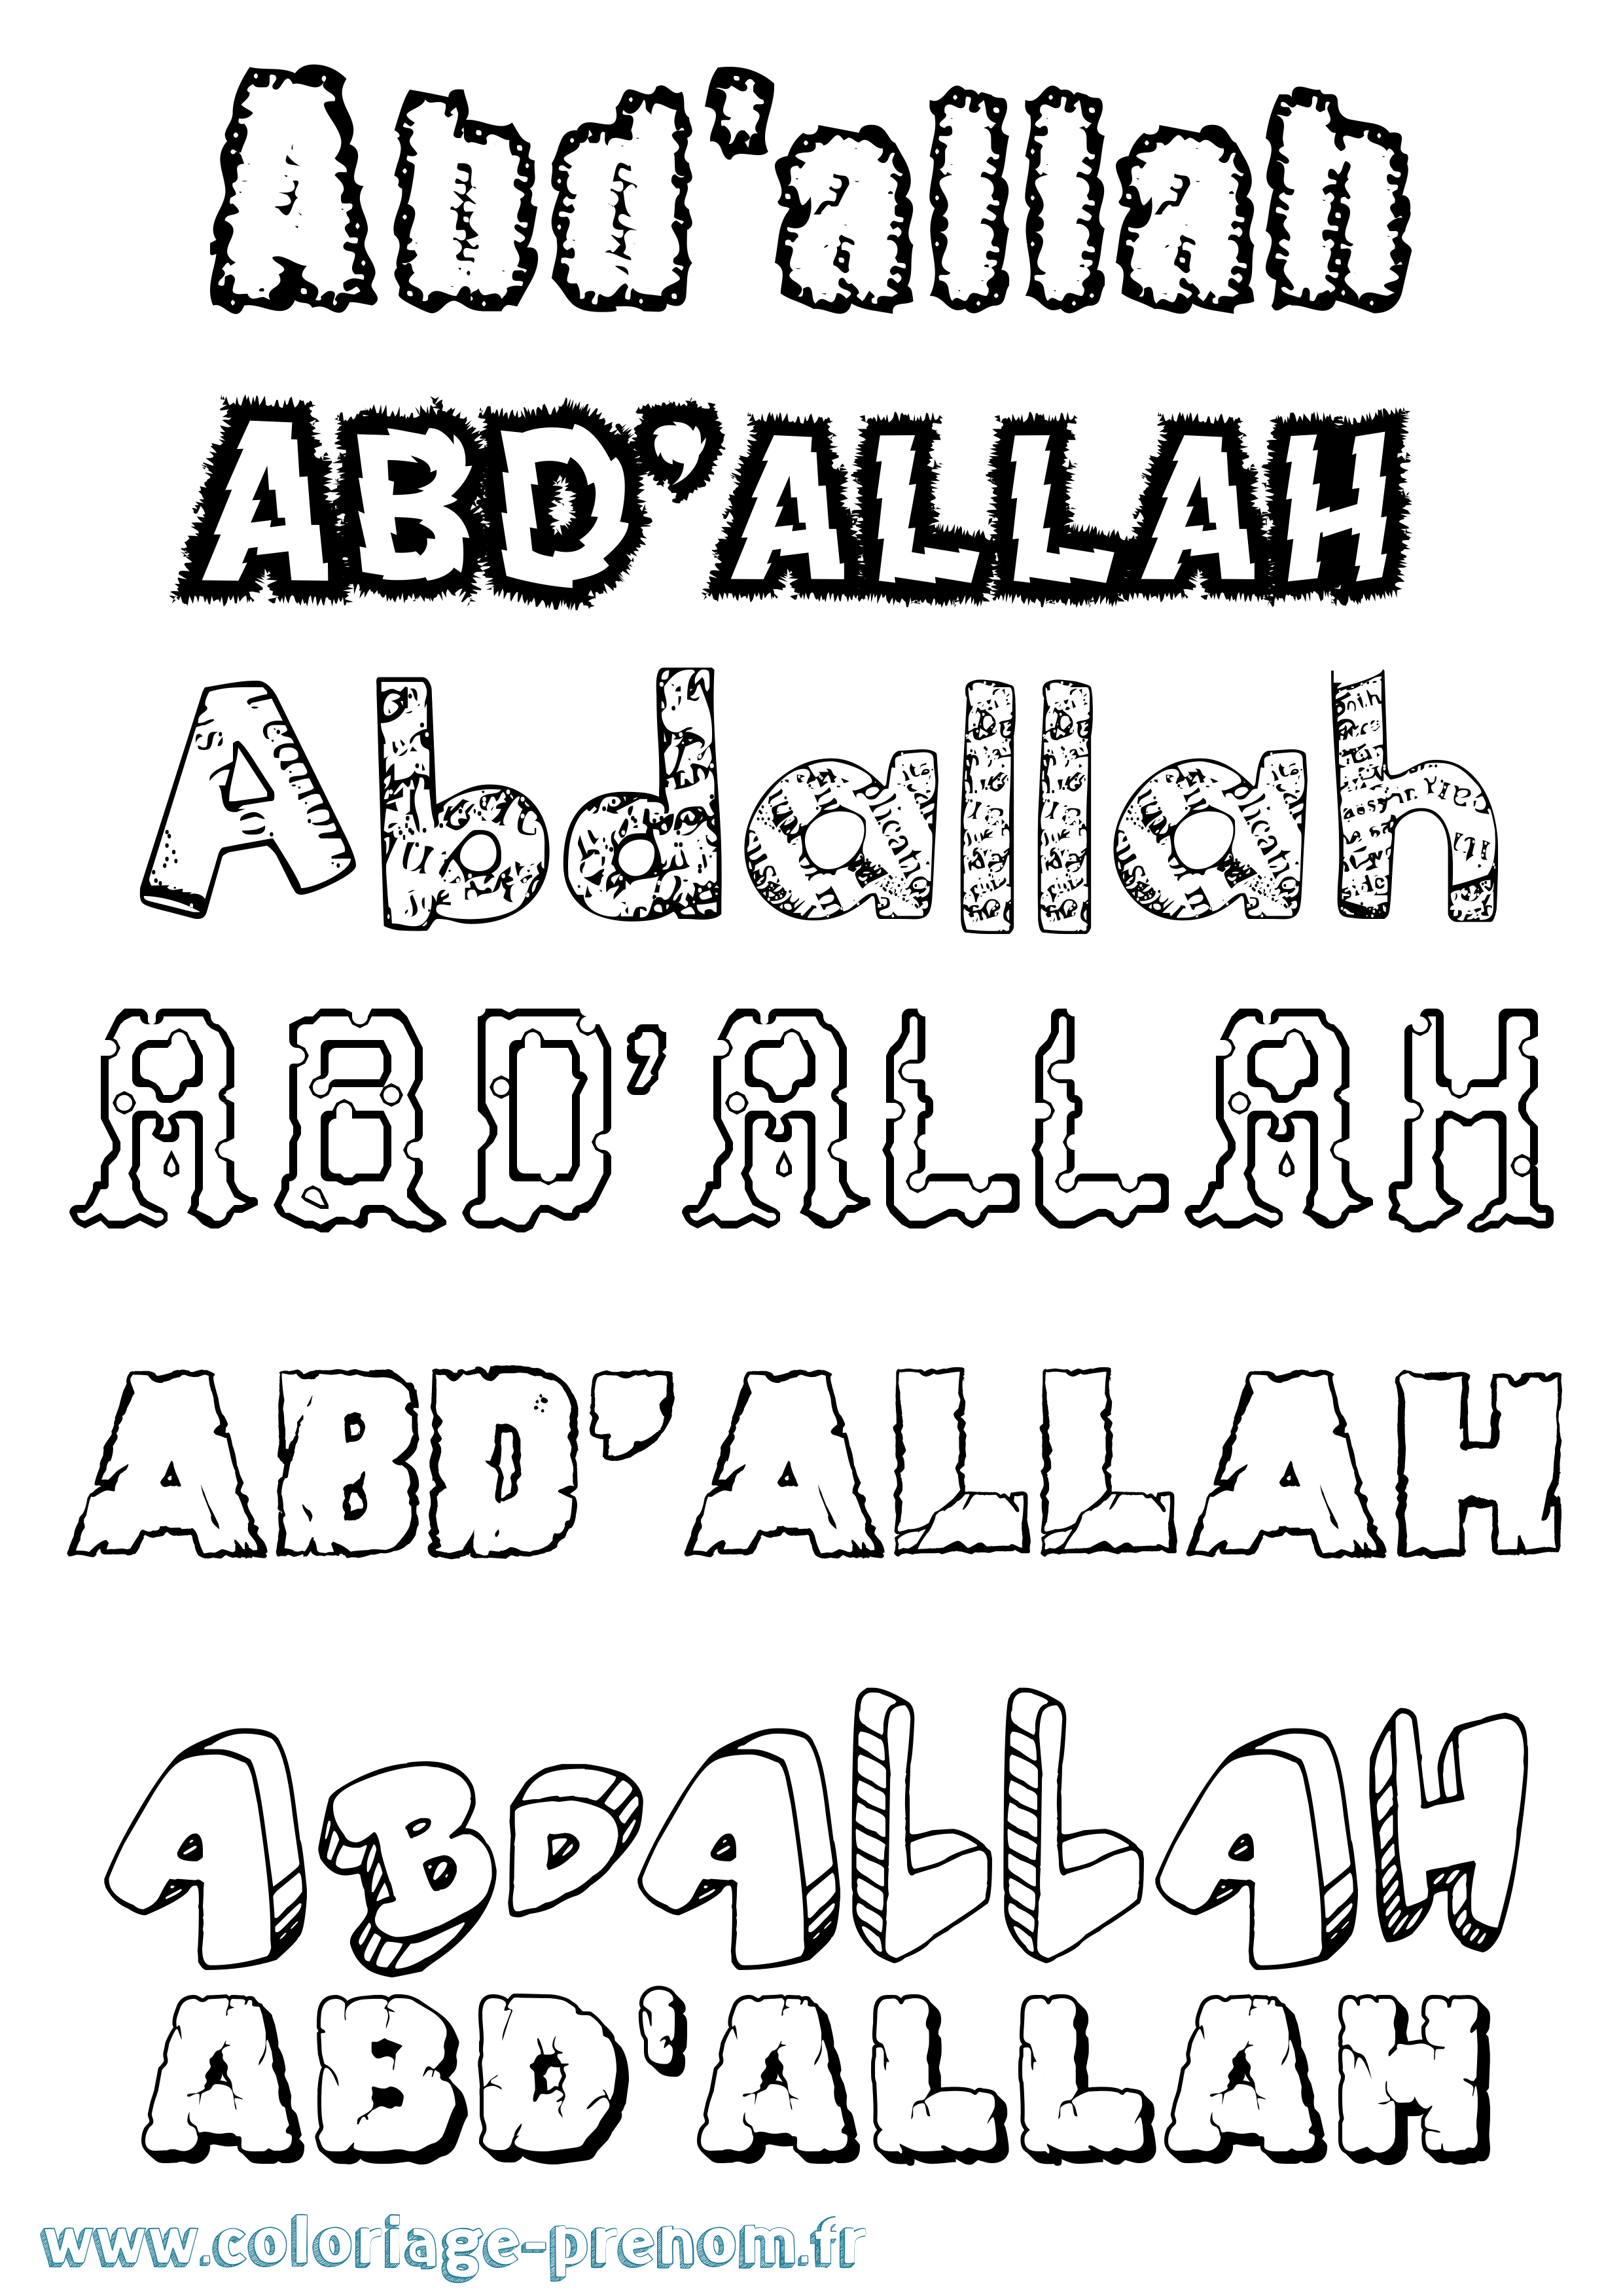 Abd'allah
ABD'ALLAH
Abdallah
ABD'ALLAH
ABD'ALLAH
ABDALLAH
ABD'ALLAH
www.coloriage-prenom.fr